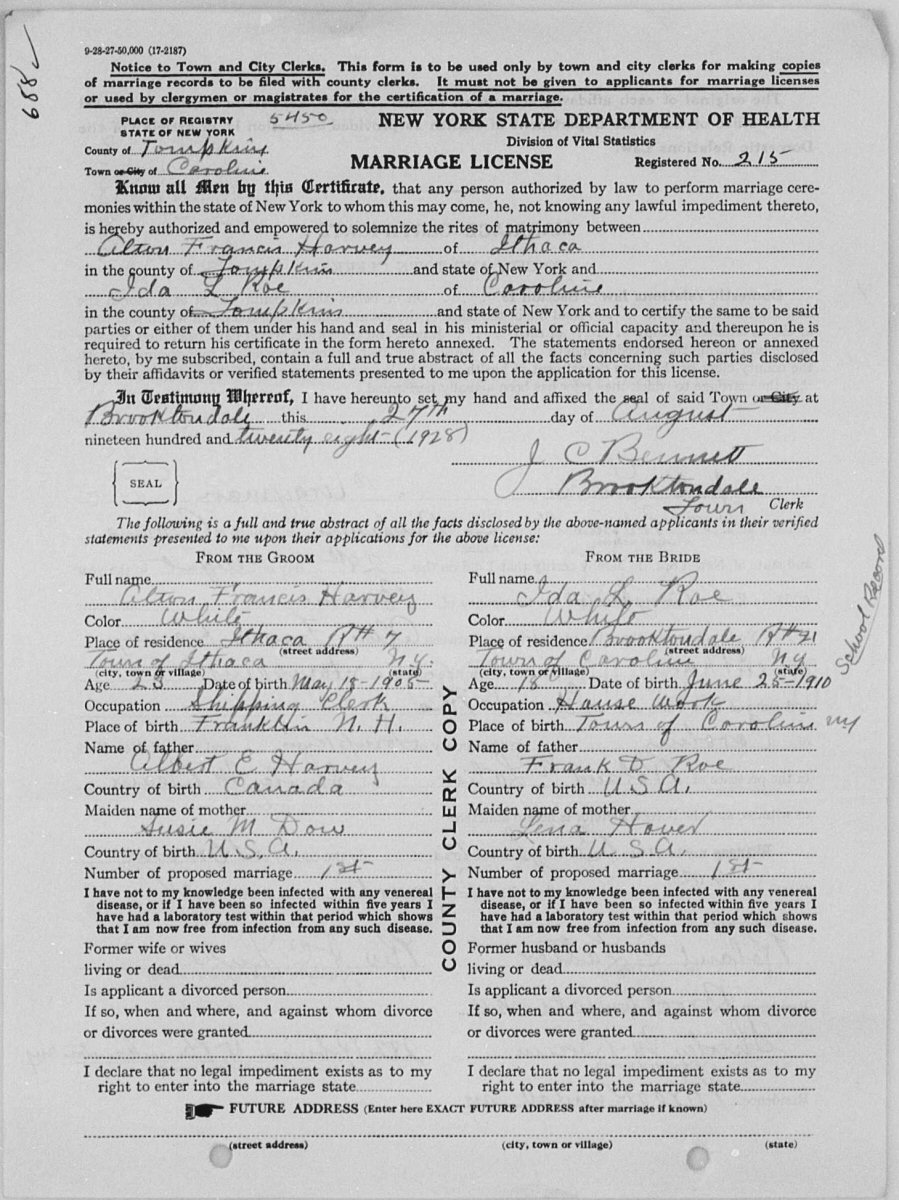 9-28-27-50,000 (17-2187)
688
Notice to Town and City Clerks. This form is to be used only by town and city clerks for making copies
of marriage records to be filed with county clerks. It must not be given to applicants for marriage licenses
or used by clergymen or magistrates for the certification of a marriage.
PLACE OF REGISTRY 5450 NEW YORK STATE DEPARTMENT OF HEALTH
STATE OF NEW YORK
Division of Vital Statistics
County of Tompkins
MARRIAGE LICENSE Registered No. 215
Town or City of Caroline
Know all Men by this Certificate, that any person authorized by law to perform marriage cere-
monies within the state of New York to whom this may come, he, not knowing any lawful impediment thereto,
is hereby authorized and empowered to solemnize the rites of matrimony between
Alton Francis Harvey of Ithaca
in the county of Tompkins and state of New York and
Ida L Roe of Caroline
in the county of Tompkins and state of New York and to certify the same to be said
parties or either of them under his hand and seal in his ministerial or official capacity and thereupon he is
required to return his certificate in the form hereto annexed. The statements endorsed hereon or annexed
hereto, by me subscribed, contain a full and true abstract of all the facts concerning such parties disclosed
by their affidavits or verified statements presented to me upon the application for this license.
In Testimony Whereof, I have hereunto set my hand and affixed the seal of said Town or City at
Brooktondale this 27th day of August
nineteen hundred and twenty eight (1928)
J C Bennett
SEAL
Brooktondale
Town Clerk
The following is a full and true abstract of all the facts disclosed by the above-named applicants in their verified
statements presented to me upon their applications for the above license:
FROM THE GROOM
Full name
Alton Francis Harvey
Color White
Place of residence Ithaca R#7
(street address)
Town of Ithaca N.Y.
(city, town or village) (state)
Age 23 Date of birth May 18-1905
Occupation Shipping Clerk
Place of birth Franklin N. H.
Name of father
Albert E Harvey
Country of birth Canada
Maiden name of mother
Susie M Dow
Country of birth U.S.A.
Number of proposed marriage 1st
I have not to my knowledge been infected with any venereal
disease, or if I have been so infected within five years I
have had a laboratory test within that period which shows
that I am now free from infection from any such disease.
Former wife or wives
living or dead
Is applicant a divorced person
If so, when and where, and against whom divorce
or divorces were granted
I declare that no legal impediment exists as to my
right to enter into the marriage state
COUNTY CLERK COPY
FROM THE BRIDE
Full name
Ida L Roe
Color White
Place of residence Brooktondale R#21
(street address)
Town of Caroline N.Y.
(city, town or village) (state)
Age 18 Date of birth June 25-1910
School Record
Occupation House Work
Place of birth Town of Caroline NY
Name of father
Frank D Roe
Country of birth U.S.A.
Maiden name of mother
Lena Hover
Country of birth U.S.A.
Number of proposed marriage 1st
I have not to my knowledge been infected with any venereal
disease, or if I have been so infected within five years I
have had a laboratory test within that period which shows
that I am now free from infection from any such disease.
Former husband or husbands
living or dead
Is applicant a divorced person
If so, when and where, and against whom divorce
or divorces were granted
I declare that no legal impediment exists as to my
right to enter into the marriage state
FUTURE ADDRESS (Enter here EXACT FUTURE ADDRESS after marriage if known)
(street address) (city, town or village) (state)